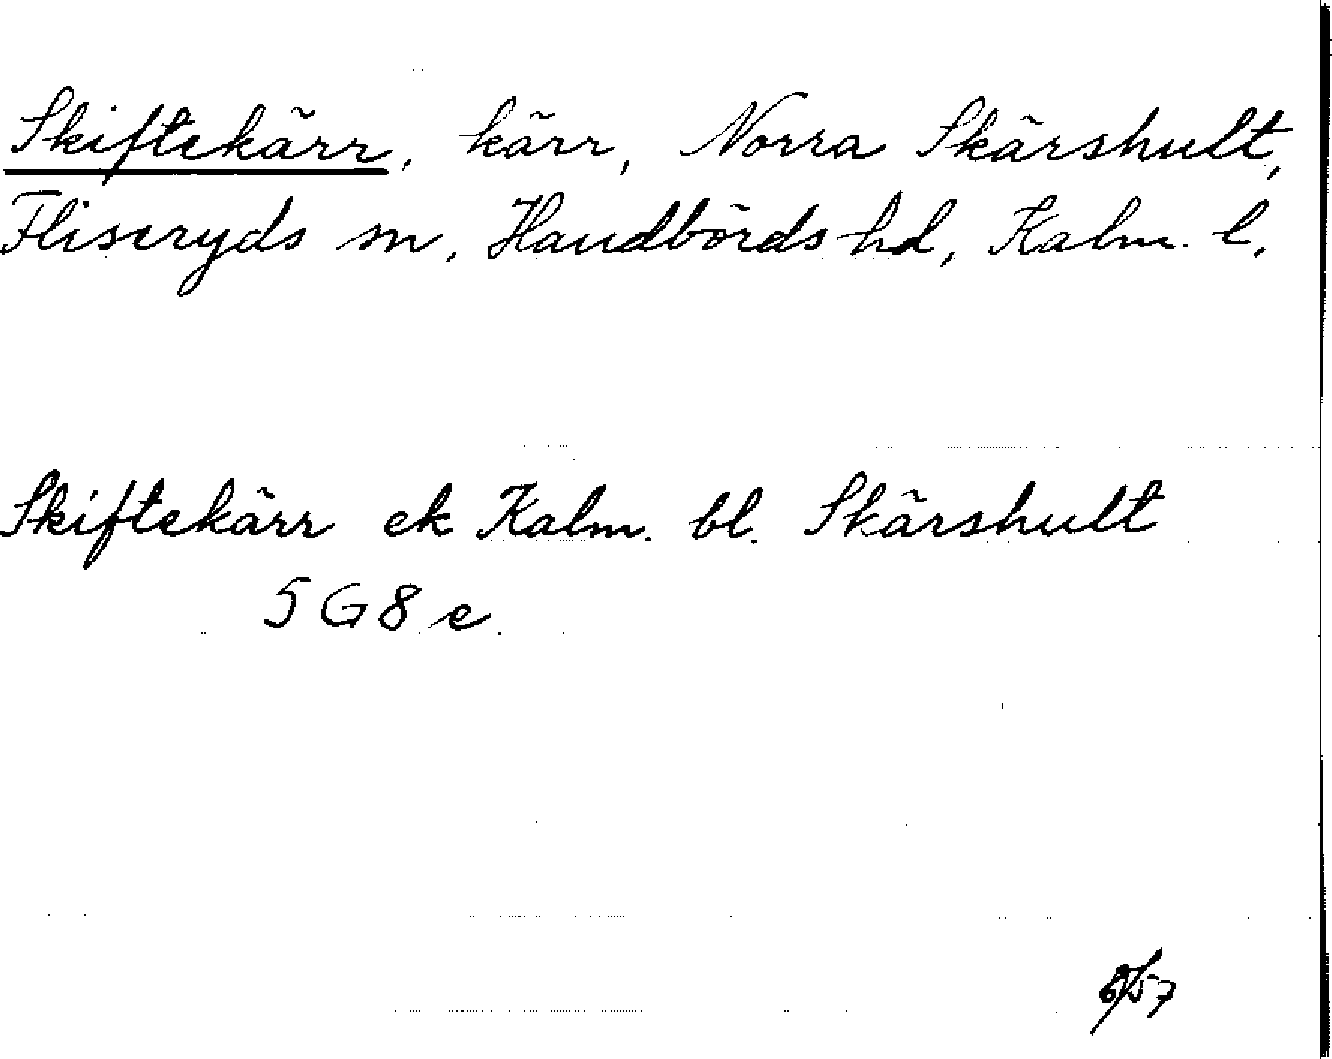 Skiftekärr, kärr, Norra Skärshult,
Fliseryds sn, Handbörds hd, Kalm. l.
Skiftekärr ek Kalm. bl. Skärshult
5 G 8 e.